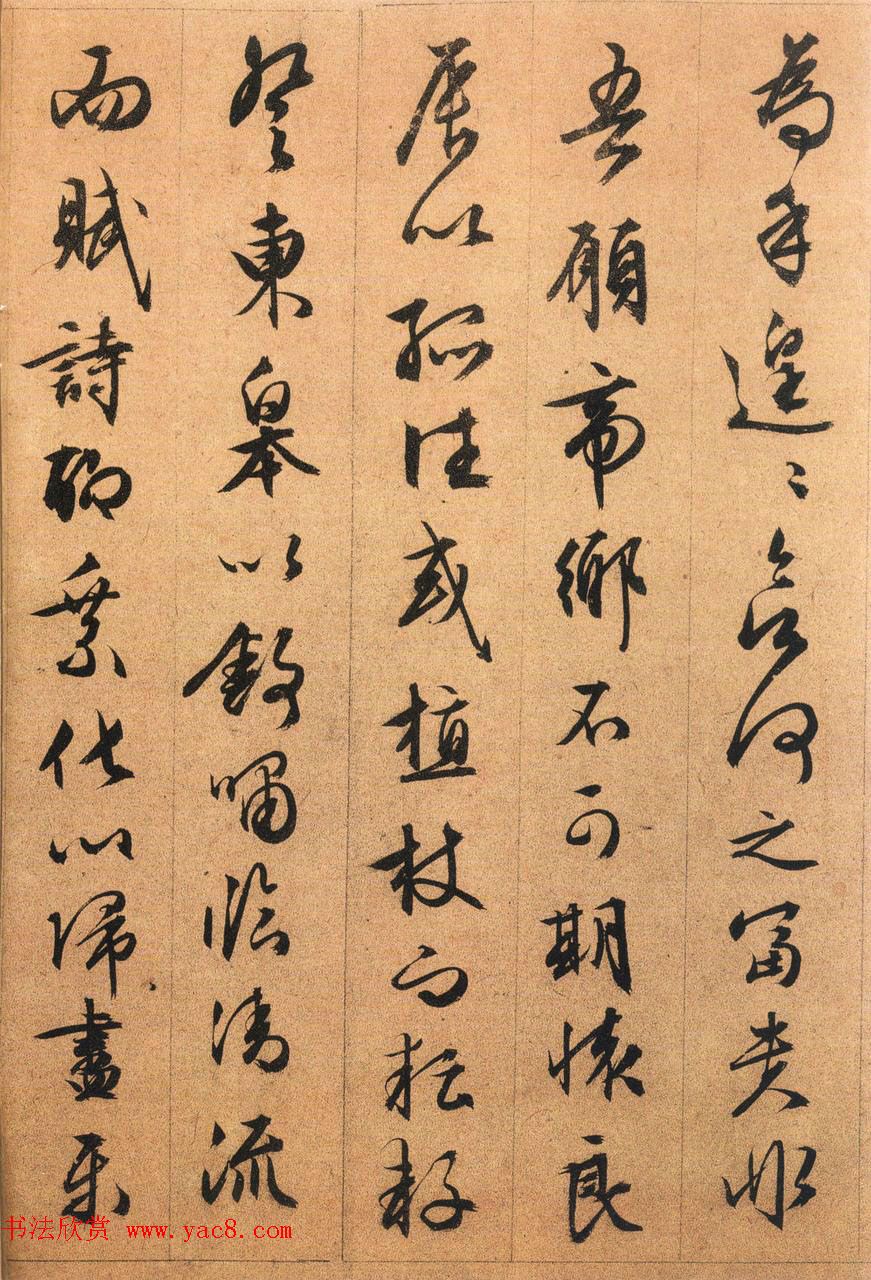 為乎遑〻欲何之富貴非
吾願帝鄉不可期懷良
辰以孤往或植杖而耘耔
登東皋以舒嘯臨清流
而賦詩聊乘化以歸盡樂
书法欣赏 www.yac8.com